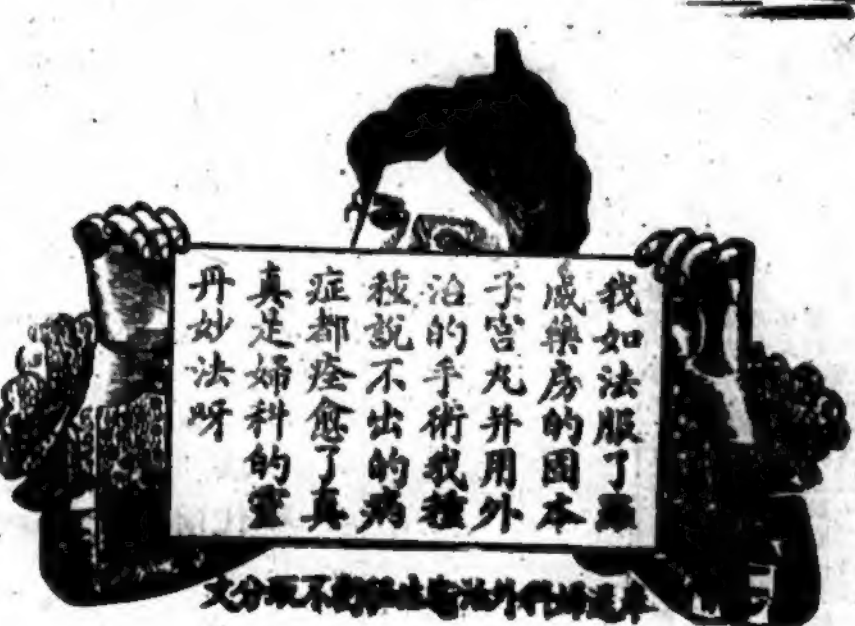 我如法服了羅
威藥房的固本
子宮丸并用外
治的手術我種
種說不出的病
症都痊愈了真
真是婦科的靈
丹妙法呀
奉送婦科外治 不取分文